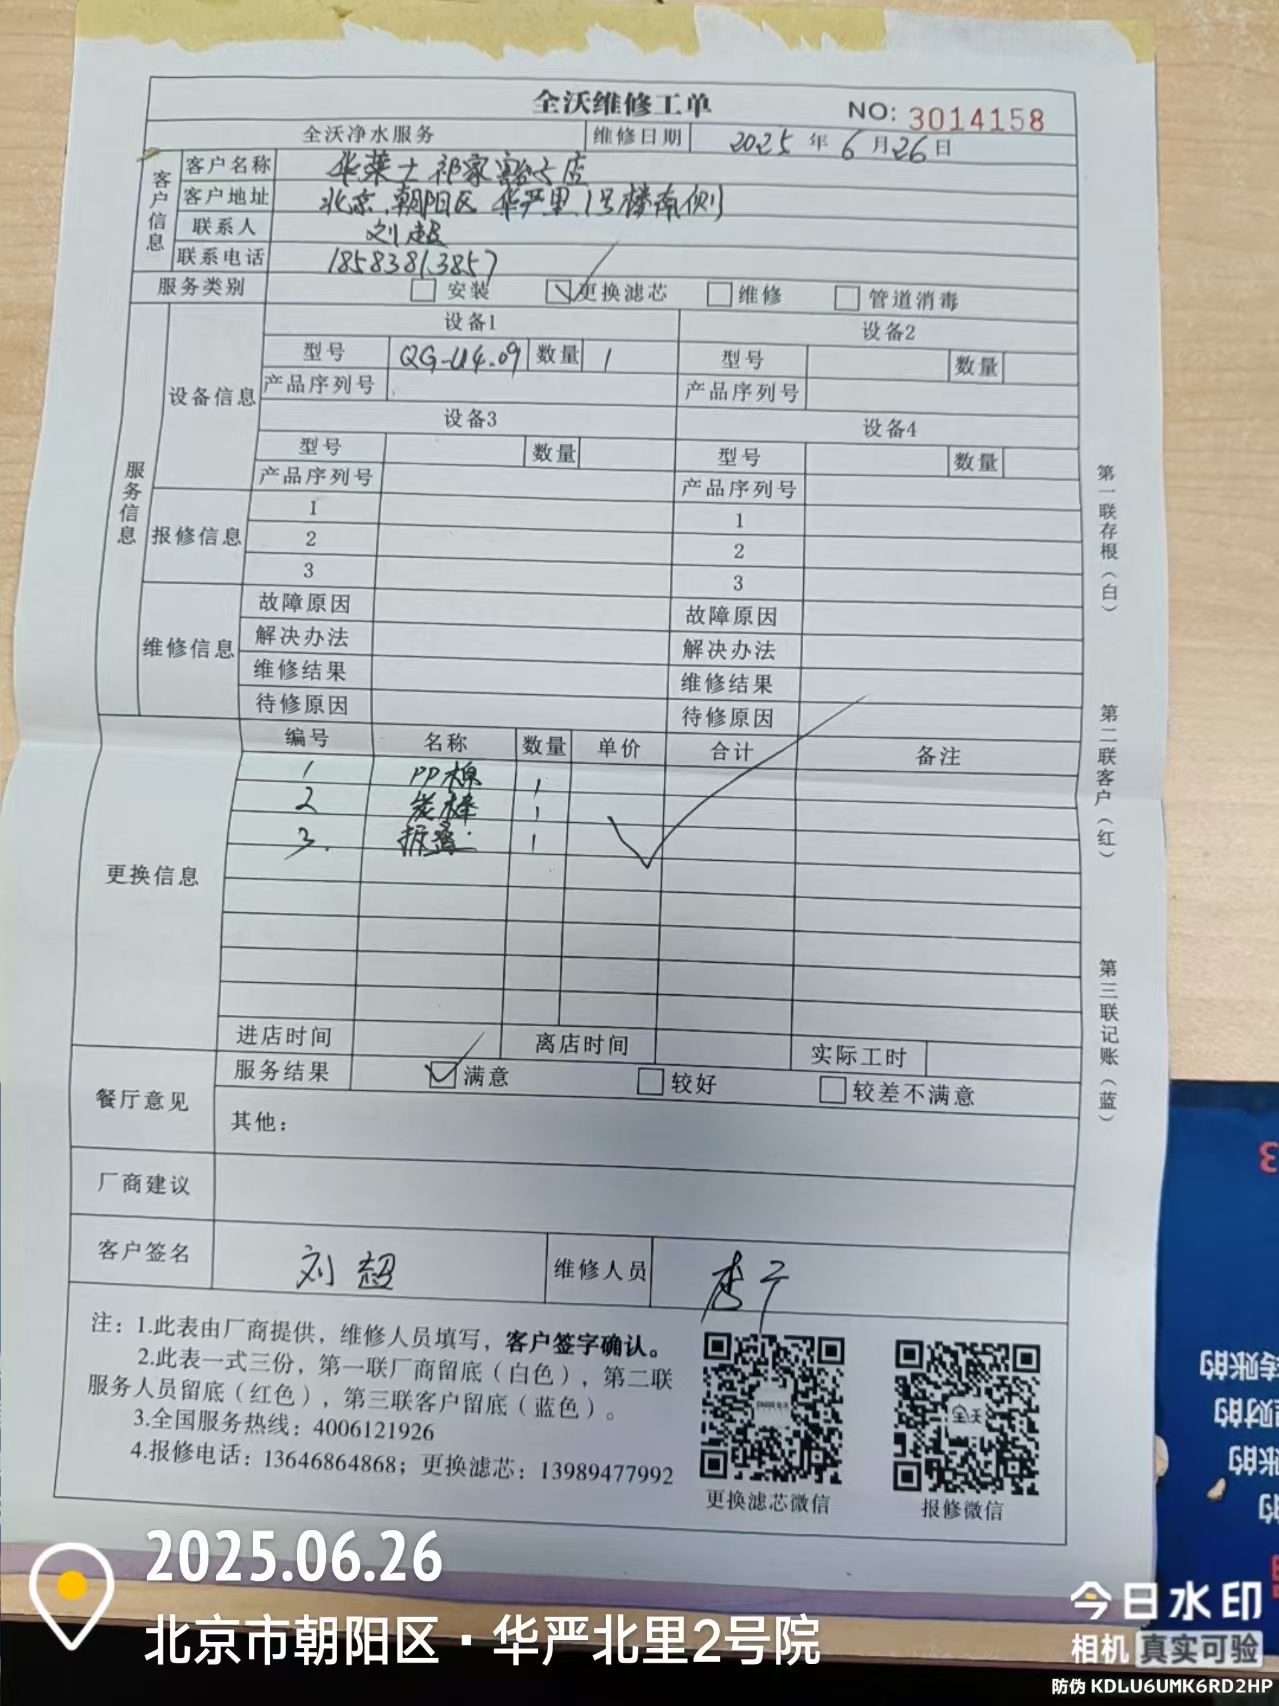 全沃维修工单
NO: 3014158
全沃净水服务 维修日期 2025 年 6 月 26 日
客户信息
客户名称 华莱士祁家豁子店
客户地址 北京朝阳区华严里1号楼南侧
联系人 刘超
联系电话 18583813857
服务类别 安装 更换滤芯 维修 管道消毒
服务信息
设备信息
设备1 设备2
型号 QG-U4.09 数量 1 型号 数量
产品序列号 产品序列号
设备3 设备4
型号 数量 型号 数量
产品序列号 产品序列号
报修信息
1 1
2 2
3 3
维修信息
故障原因 故障原因
解决办法 解决办法
维修结果 维修结果
待修原因 待修原因
更换信息
编号 名称 数量 单价 合计 备注
1 PP棉 1
2 炭棒 1
3. 1
进店时间 离店时间 实际工时
餐厅意见
服务结果 满意 较好 较差不满意
其他：
厂商建议
客户签名 刘超 维修人员 李宁
注：1.此表由厂商提供，维修人员填写，客户签字确认。
2.此表一式三份，第一联厂商留底（白色），第二联
服务人员留底（红色），第三联客户留底（蓝色）。
3.全国服务热线：4006121926
4.报修电话：13646864868；更换滤芯：13989477992
更换滤芯微信
报修微信
第一联存根（白）
第二联客户（红）
第三联记账（蓝）
2025.06.26
北京市朝阳区·华严北里2号院
今日水印
相机 真实可验
防伪 KDLU6UMK6RD2HP